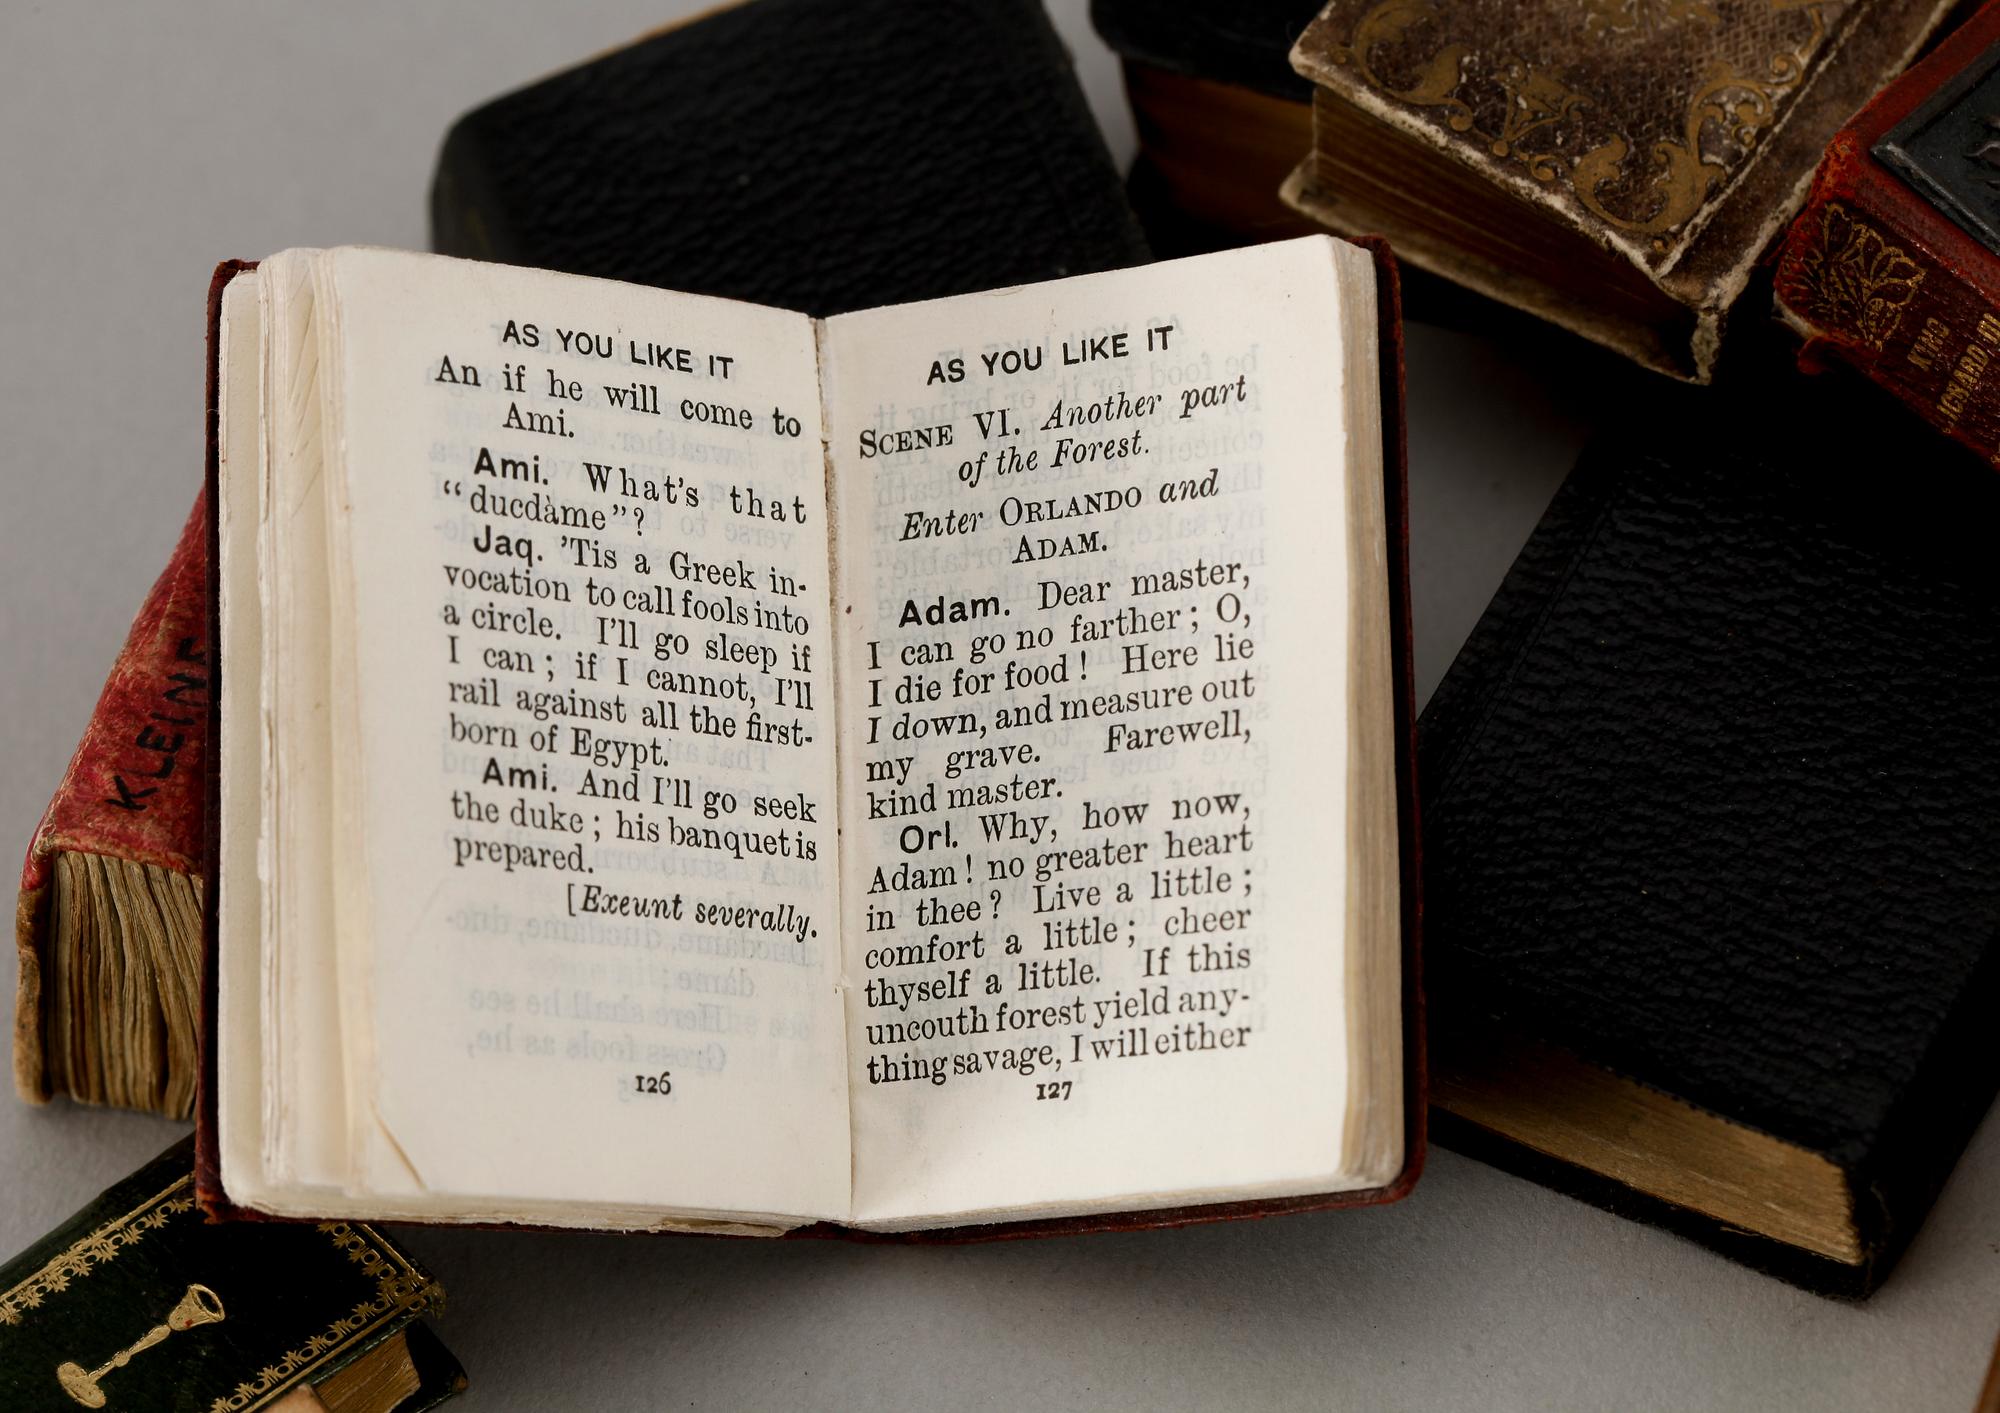 AS YOU LIKE IT
An if he will come to
Ami.
Ami. What's that
“ducdàme”?
Jaq. 'Tis a Greek in-
vocation to call fools into
a circle. I'll go sleep if
I can; if I cannot, I'll
rail against all the first-
born of Egypt.
Ami. And I'll go seek
the duke; his banquet is
prepared.
[Exeunt severally.
126
AS YOU LIKE IT
SCENE VI. Another part
of the Forest.
Enter ORLANDO and
ADAM.
Adam. Dear master,
I can go no farther; O,
I die for food! Here lie
I down, and measure out
my grave. Farewell,
kind master.
Orl. Why, how now,
Adam! no greater heart
in thee? Live a little;
comfort a little; cheer
thyself a little. If this
uncouth forest yield any-
thing savage, I will either
127
KING